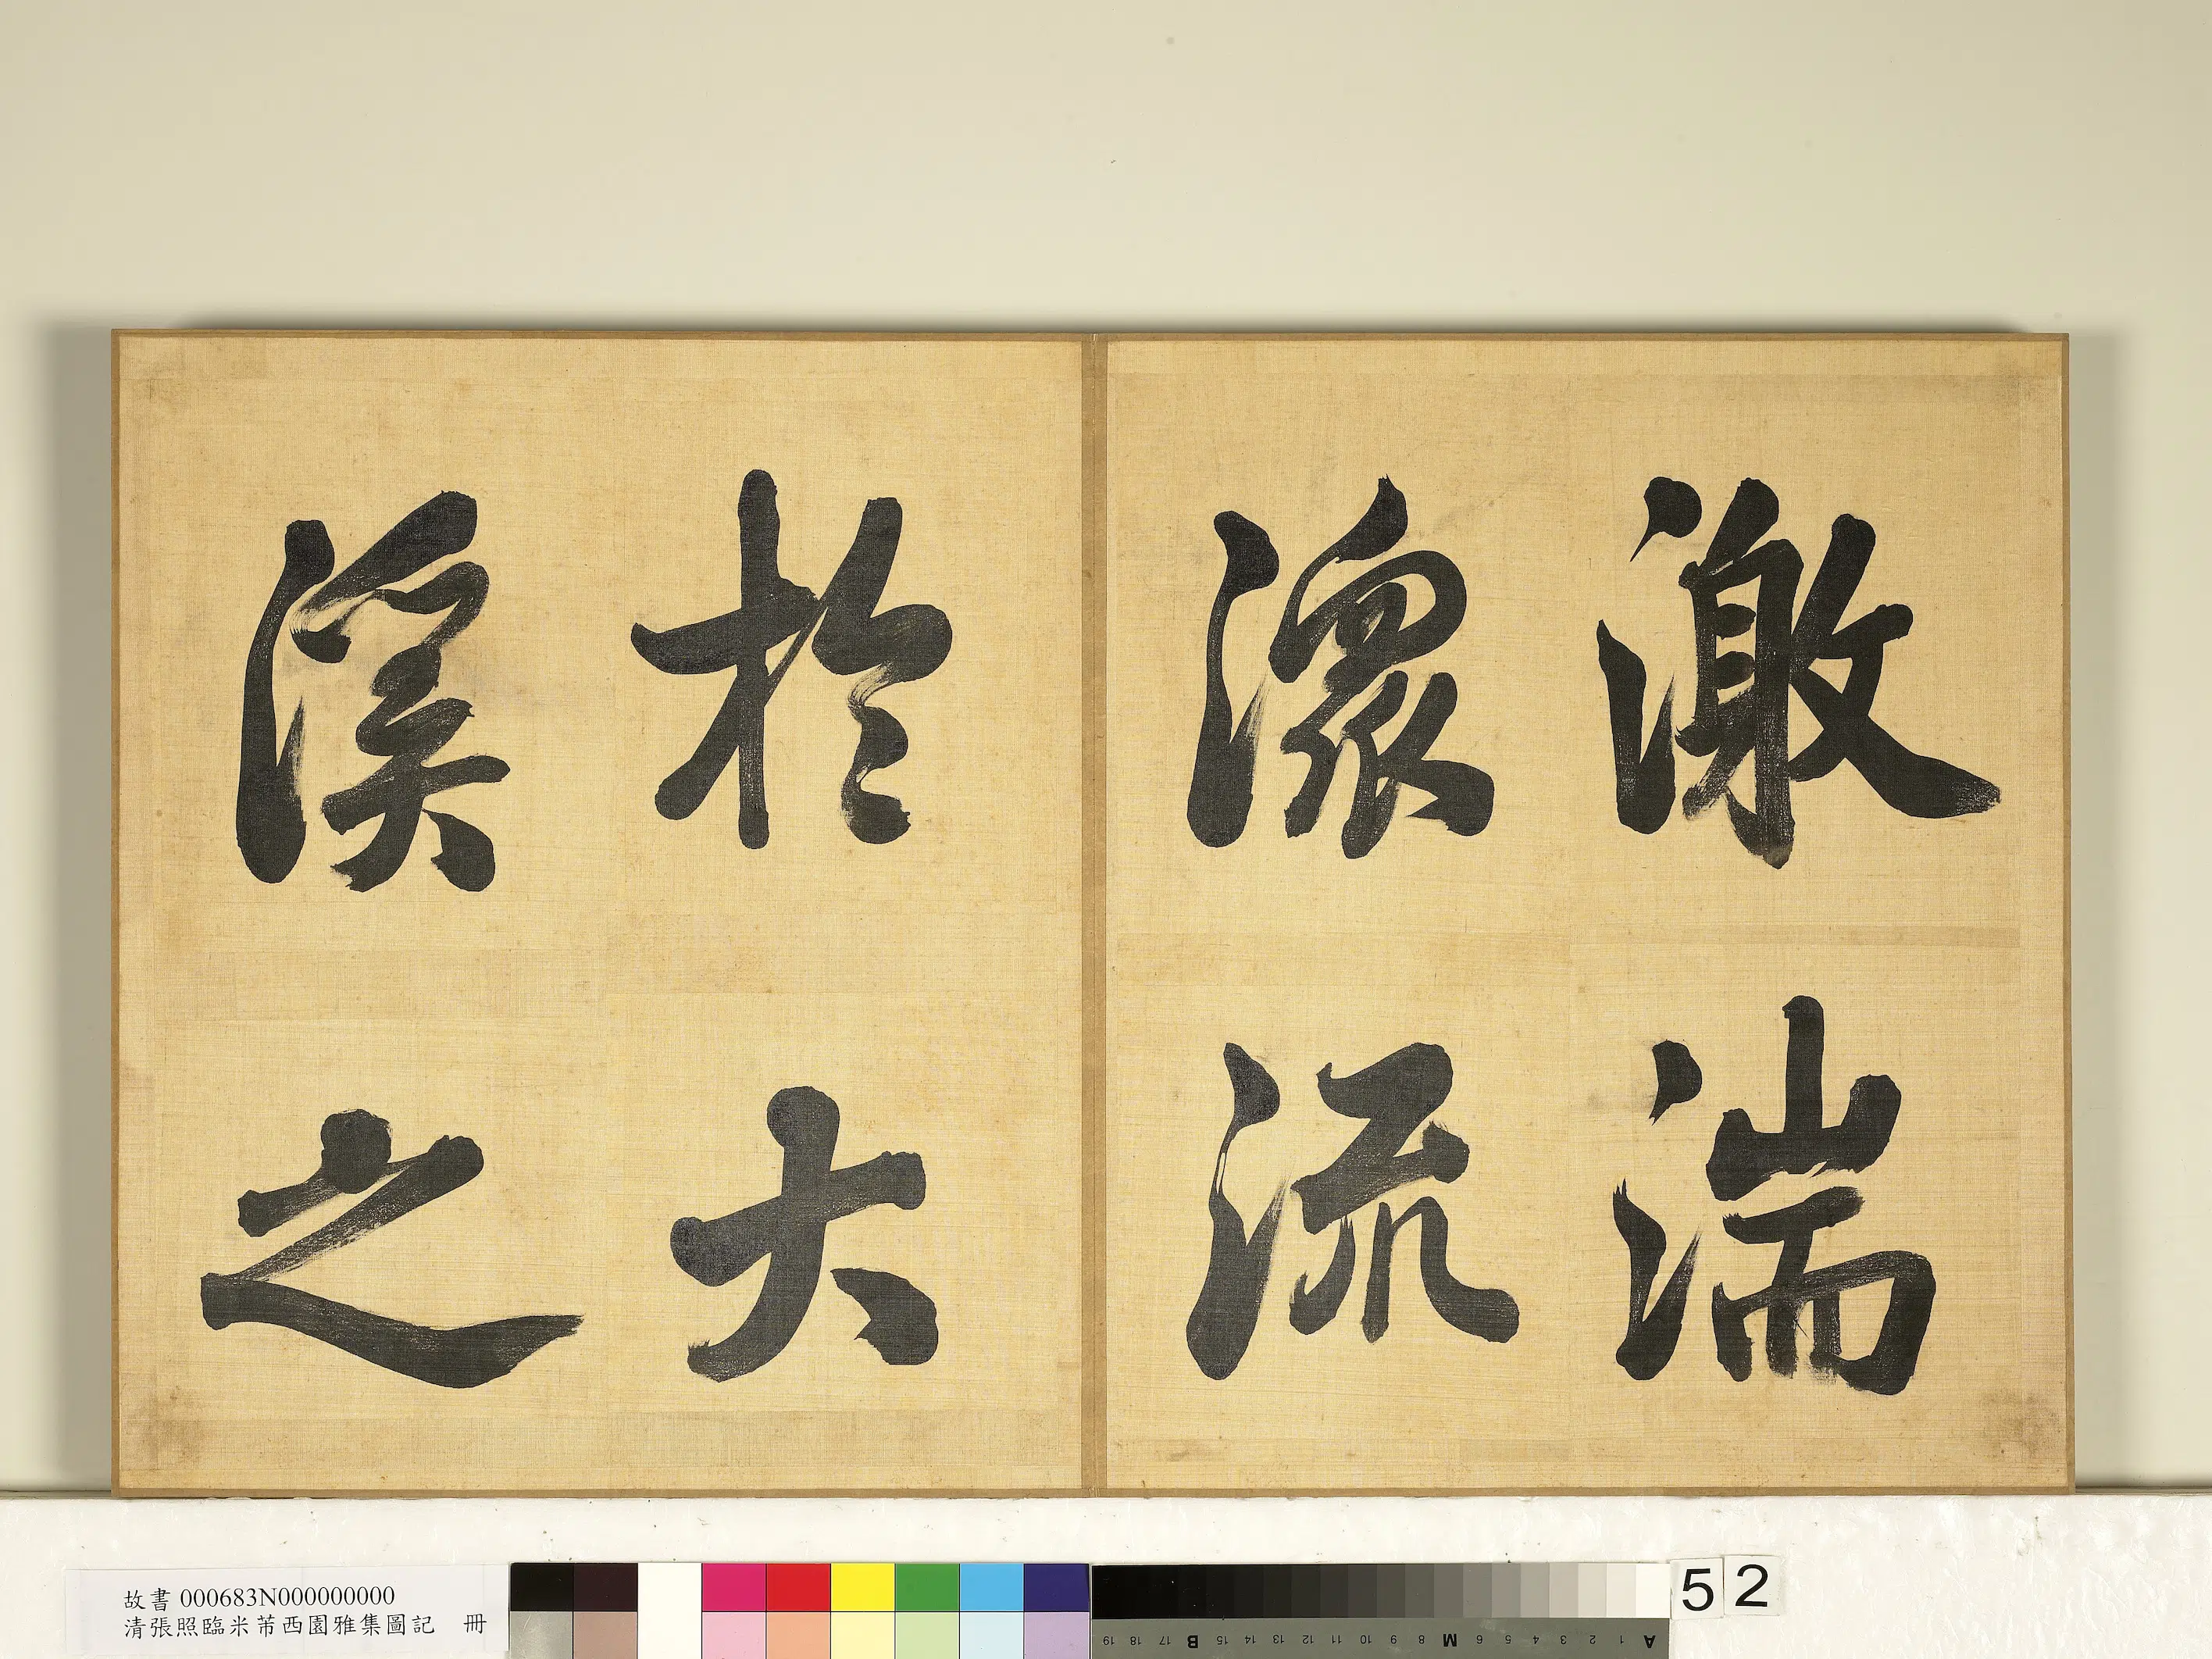 激湍
潀流
於大
溪之
故書 000683N000000000
清張照臨米芾西園雅集圖記 冊
52
A 1 2 3 4 5 6 M 8 9 10 11 12 13 14 15 B 17 18 19